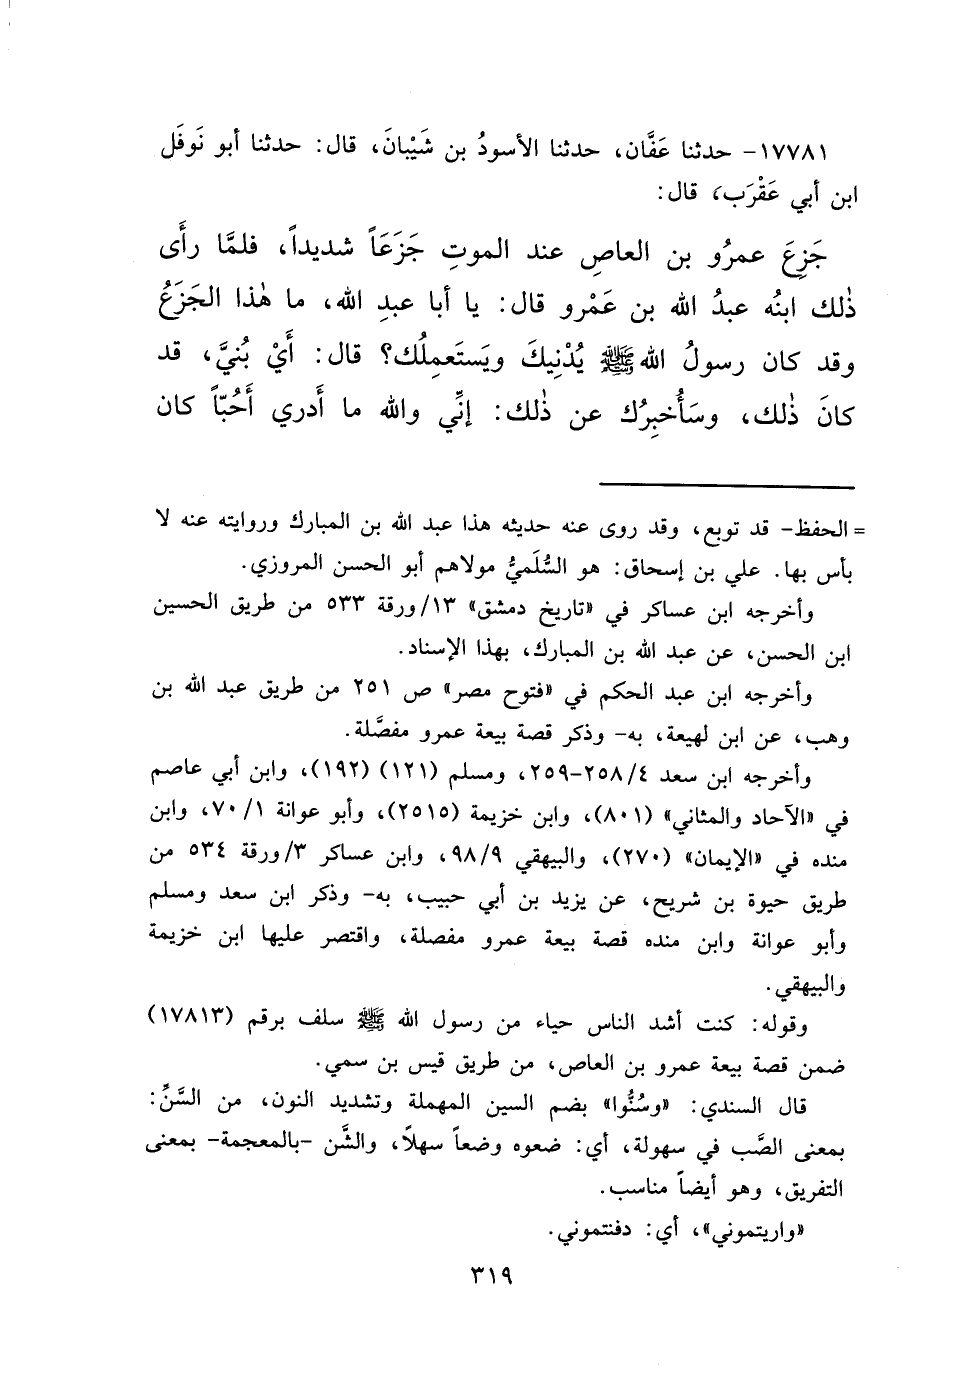 ١٧٧٨١- حدثنا عَفَّان، حدثنا الأسودُ بن شَيْبانَ، قال: حدثنا أبو نَوفَل
ابن أبي عَقْرَب، قال:
جَزِعَ عمرُو بن العاصِ عند الموتِ جَزَعَاً شديداً، فلمَّا رأَى
ذٰلك ابنُه عبدُ الله بن عَمْرو قال: يا أبا عبدِ الله، ما هٰذا الجَزَعُ
وقد كان رسولُ الله ﷺ يُدْنِيكَ ويَستَعمِلُك؟ قال: أَيْ بُنيَّ، قد
كانَ ذٰلك، وسَأُخبِرُك عن ذٰلك: إنِّي والله ما أَدري أَحُبّاً كان
= الحفظ- قد توبع، وقد روى عنه حديثه هذا عبد الله بن المبارك وروايته عنه لا
بأس بها. علي بن إسحاق: هو السُّلَميُّ مولاهم أبو الحسن المروزي.
وأخرجه ابن عساكر في «تاريخ دمشق» ١٣/ورقة ٥٣٣ من طريق الحسين
ابن الحسن، عن عبد الله بن المبارك، بهذا الإسناد.
وأخرجه ابن عبد الحكم في «فتوح مصر» ص ٢٥١ من طريق عبد الله بن
وهب، عن ابن لهيعة، به- وذكر قصة بيعة عمرو مفصَّلة.
وأخرجه ابن سعد ٢٥٨/٤-٢٥٩، ومسلم (١٢١) (١٩٢)، وابن أبي عاصم
في «الآحاد والمثاني» (٨٠١)، وابن خزيمة (٢٥١٥)، وأبو عوانة ٧٠/١، وابن
منده في «الإيمان» (٢٧٠)، والبيهقي ٩٨/٩، وابن عساكر ٣/ورقة ٥٣٤ من
طريق حيوة بن شريح، عن يزيد بن أبي حبيب، به- وذكر ابن سعد ومسلم
وأبو عوانة وابن منده قصة بيعة عمرو مفصلة، واقتصر عليها ابن خزيمة
والبيهقي.
وقوله: كنت أشد الناس حياء من رسول الله ﷺ سلف برقم (١٧٨١٣)
ضمن قصة بيعة عمرو بن العاص، من طريق قيس بن سمي.
قال السندي: «وسُنُّوا» بضم السين المهملة وتشديد النون، من السَّنِّ:
بمعنى الصَّب في سهولة، أي: ضعوه وضعاً سهلاً، والشَّن -بالمعجمة- بمعنى
التفريق، وهو أيضاً مناسب.
«واريتموني»، أي: دفنتموني.
٣١٩